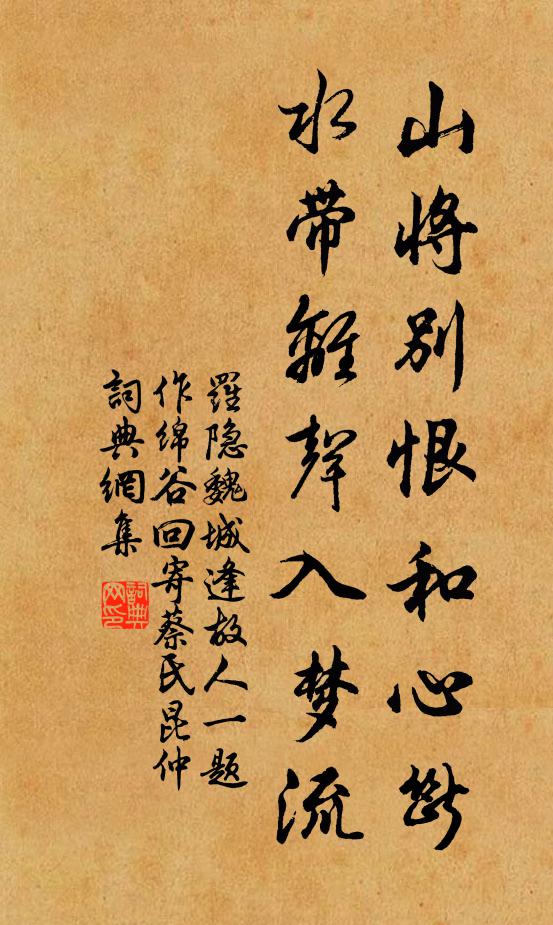 山将别恨和心斷
水带離聲入梦流
羅隐魏城逢故人一题
作绵谷回寄蔡氏昆仲
詞典網集
詞典網印